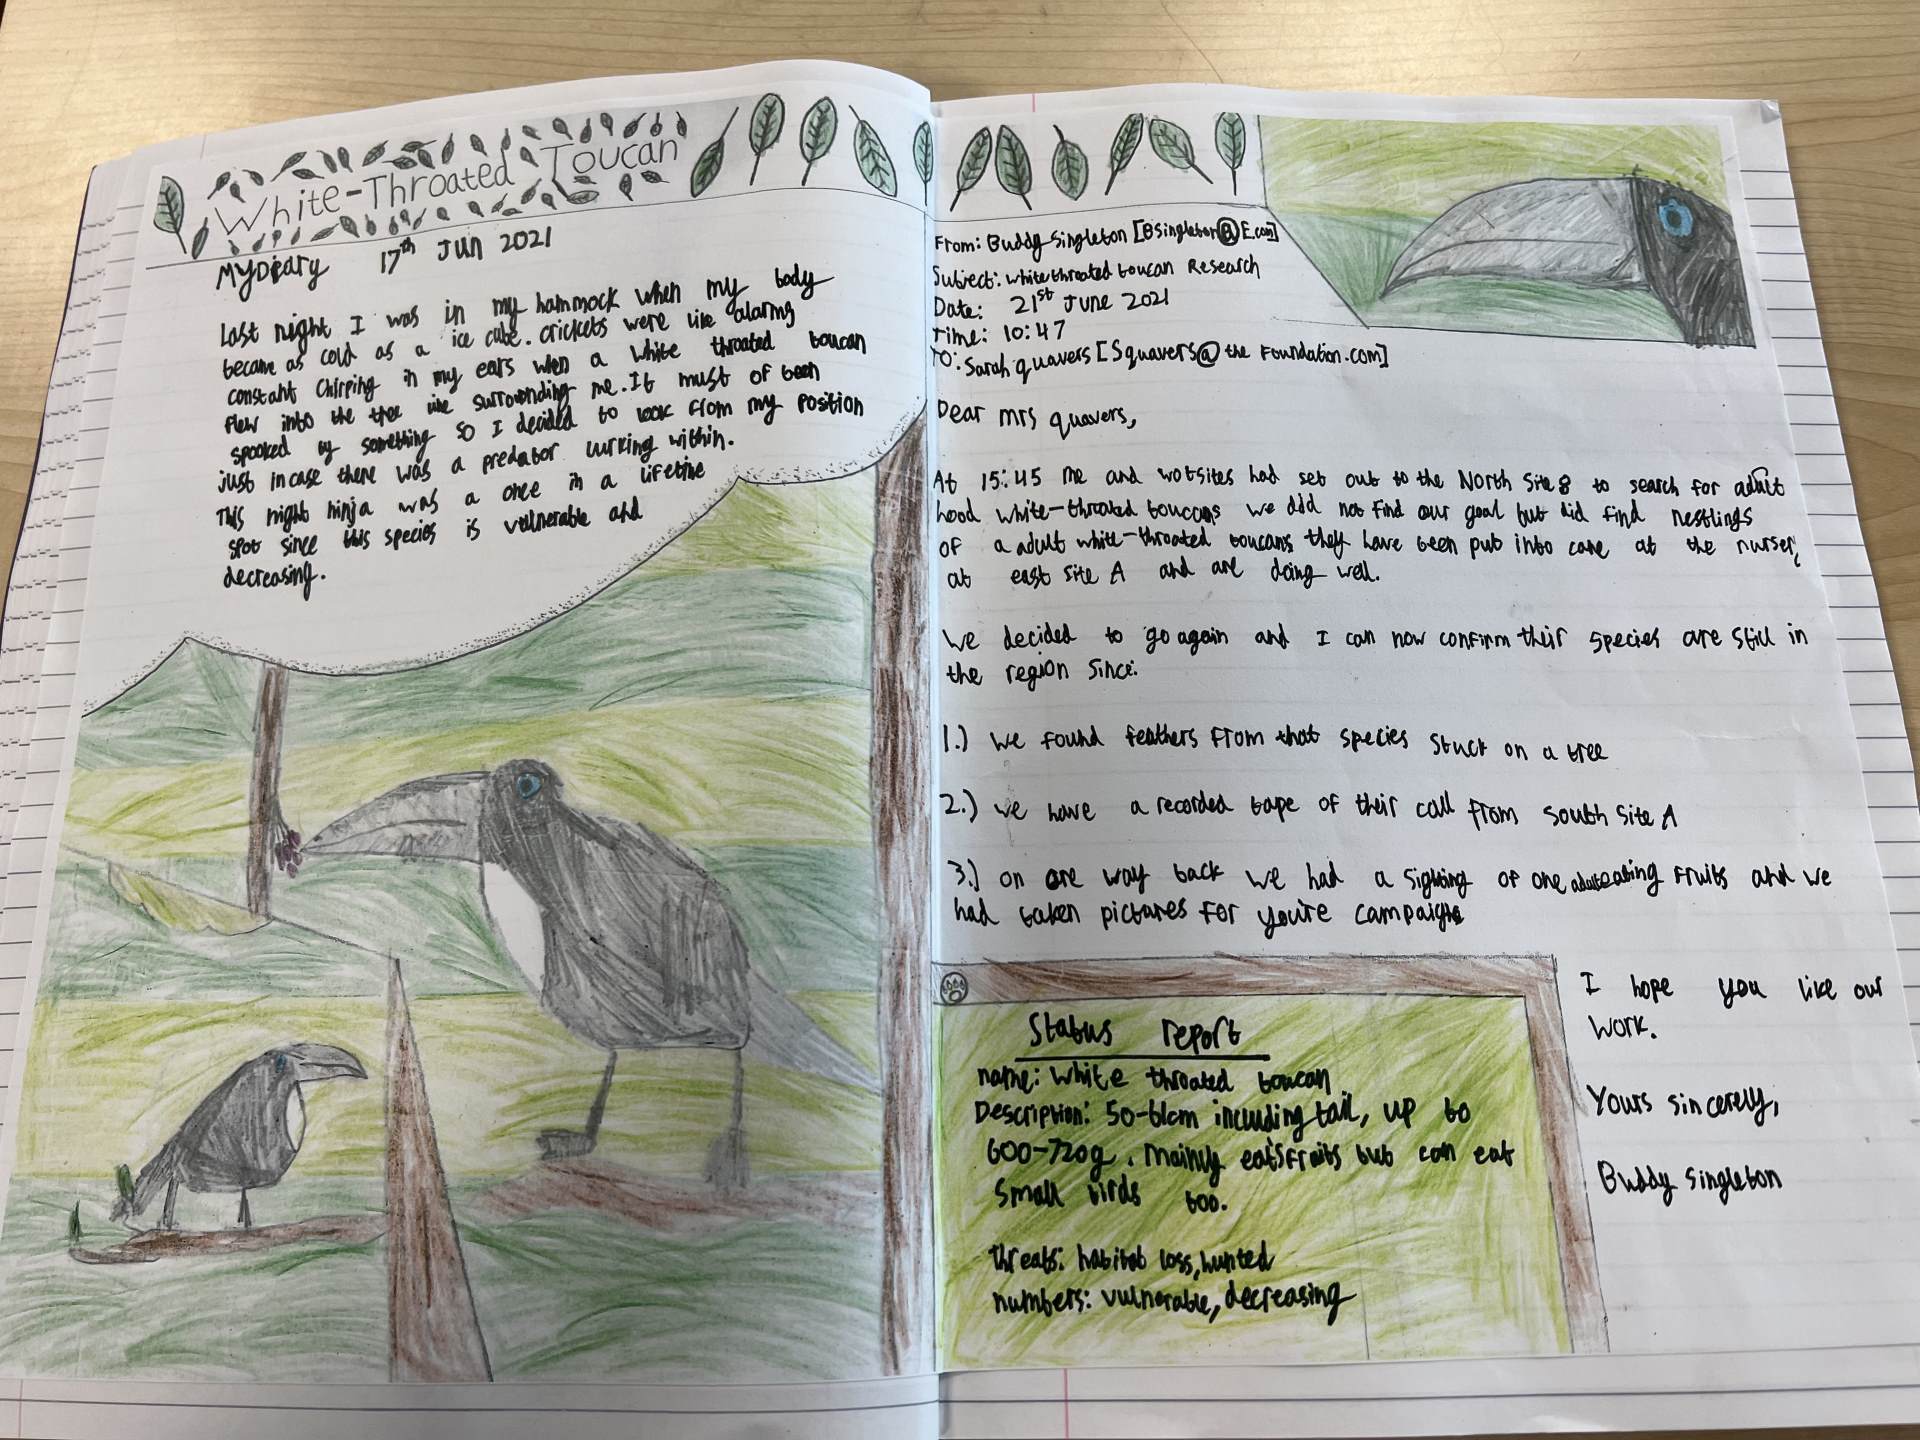 White-Throated Toucan
MyDiary 17th Jun 2021
Last night I was in my hammock when my body
became as cold as a ice cube. crickets were like alarms
constant chirping in my ears when a white throated toucan
flew into the tree line surrounding me. It must of been
spooked by something so I decided to look from my position
just incase there was a predator lurking within.
This night ninja was a once in a lifetime
spot since this species is vulnerable and
decreasing.
From: Buddy Singleton [Bsingleton@E.com]
Subject: white throated toucan Research
Date: 21st June 2021
Time: 10:47
To: Sarah quavers [Squavers@the Foundation.com]
Dear mrs quavers,
At 15:45 me and wotsites had set out to the North Site 8 to search for adult
hood white-throated toucans we ddd not find our goal but did find nestlings
of a adult white-throated toucans they have been put into care at the nursery
at east site A and are doing well.
We decided to go again and I can now confirm their species are still in
the region since:
1.) we found feathers from that species stuck on a tree
2.) we have a recorded tape of their call from south site A
3.) on are way back we had a sighting of one adult eating fruits and we
had taken pictures for you're campaign
I hope you like our
work.
Yours sincerely,
Buddy singleton
Status report
name: white throated toucan
Description: 50-61cm including tail, up to
600-720g. mainly eats fruits but can eat
small birds too.
threats: habitat loss, hunted
numbers: vulnerable, decreasing